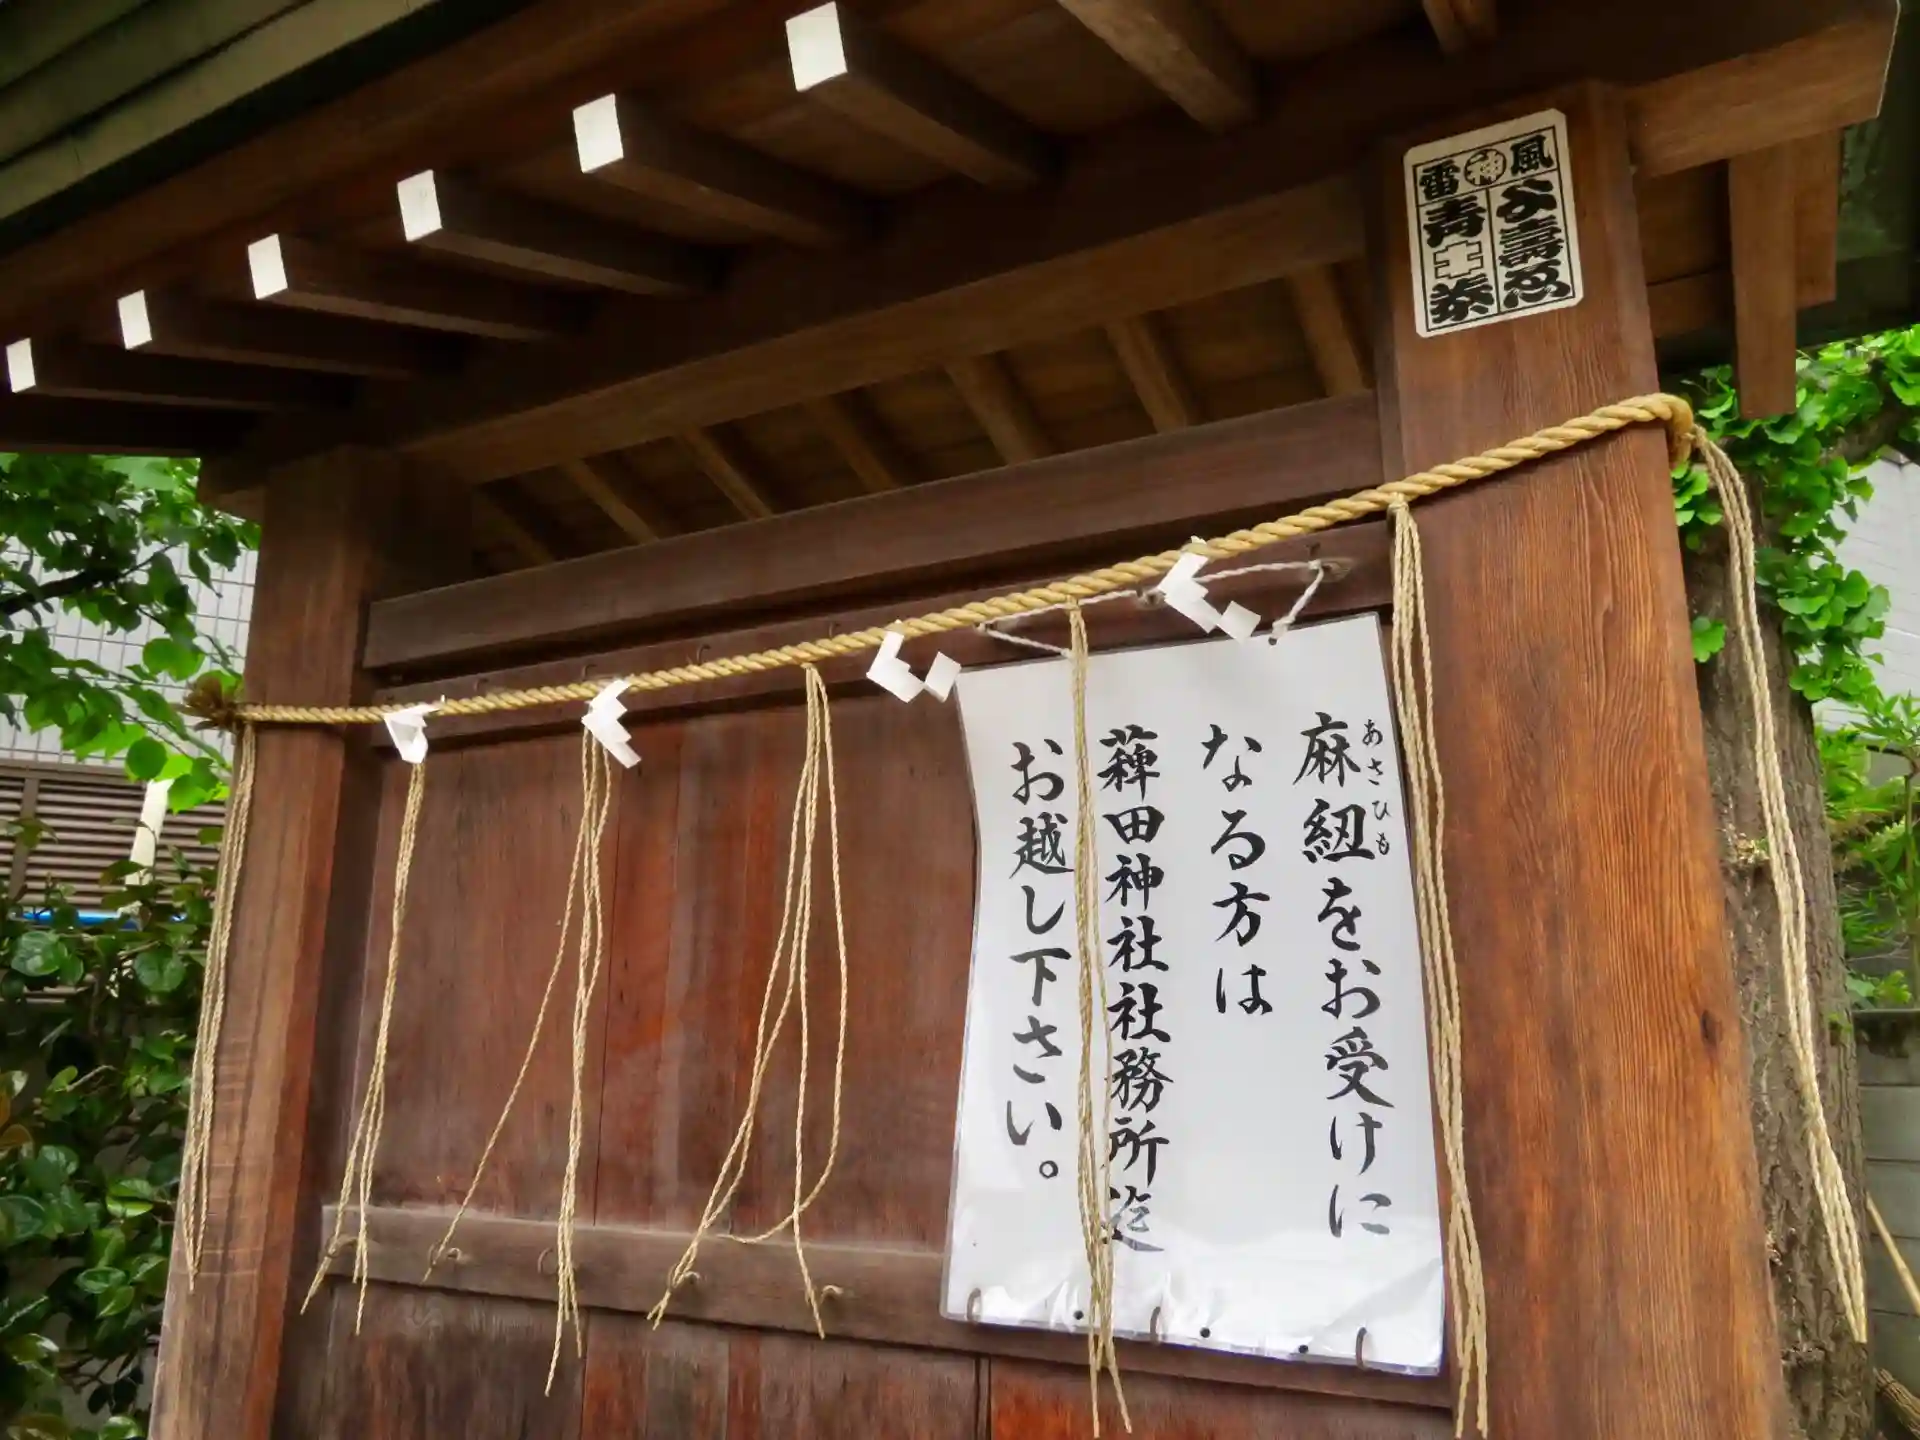 麻紐をお受けに
あさひも
なる方は
薭田神社社務所迄
お越し下さい。
風
神
雷